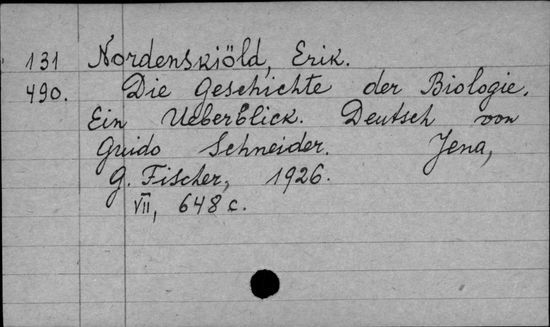 131 Nordenskiöld, Erik.
490. Die Geschichte der Biologie.
Ein Ueberblick. Deutsch von
Guido Schneider. Jena,
G. Fischer, 1926.
VII, 648 c.